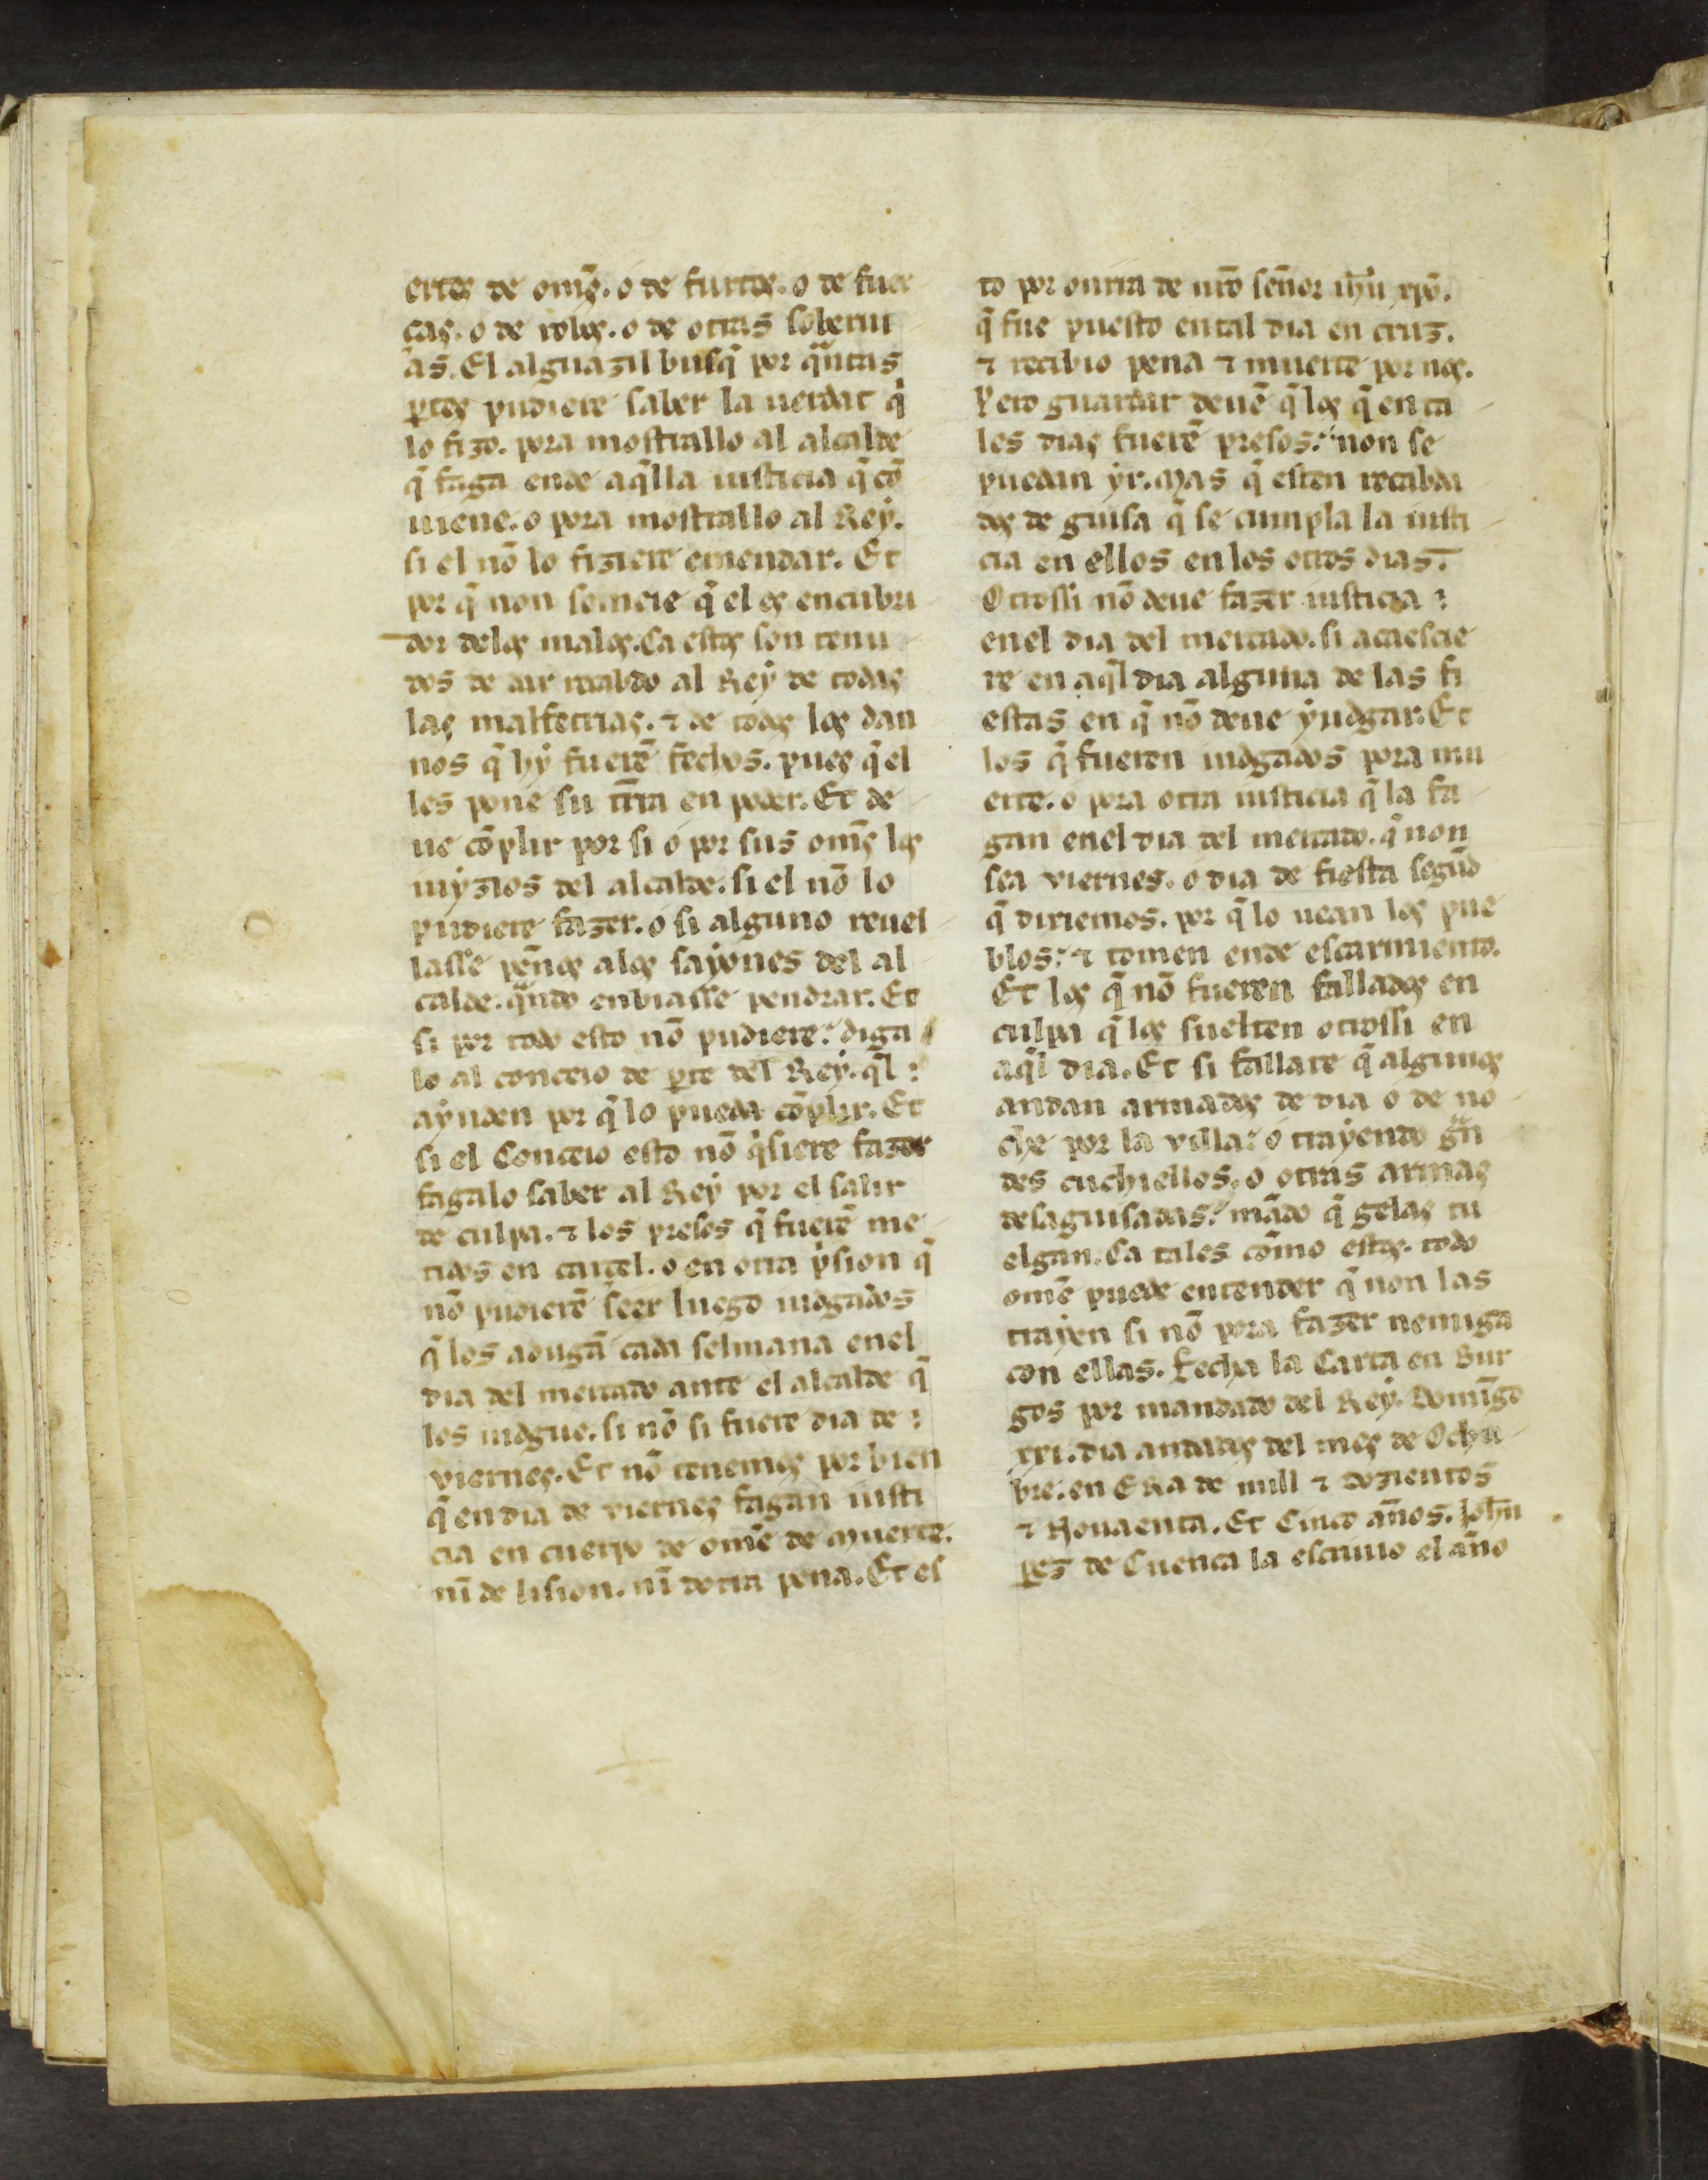 ertos de om̃s. o de furtos. o de fuer
ças. o de robos. o de otras soberui
as. El alguazil busq̃ por q̃ntas
p̱tes pudiere saber la uerdat q̃
lo fizo. pora mostrallo al alcalde
q̃ faga ende aq̃lla iusticia q̃ cõ
uiene. o pora mostrallo al Rey.
si el nõ lo fiziere emendar. Et
por q̃ non semeie q̃ el es encubri
dor delos malos. Ca estos son tenu
dos de dar recabdo al Rey de todas
las malfetrias. ⁊ de todos los dan
nos q̃ hy fuerẽ fechos. pues q̃ el
les pone su tr̃ra en poder. Et de
ue cõplir por si o por sus om̃s los
iuyzios del alcalde. si el nõ lo
pudiere fazer. o si alguno reuel
lasse pẽnos alos sayones del al
calde. q̃ndo enbiasse pendrar. Et
si por todo esto nõ pudiere. diga
lo al conceio de p̱te del Rey. q̃l
ayuden por q̃ lo pueda cõplir. Et
si el Conceio esto nõ q̃siere fazer
fagalo saber al Rey por el salir
de culpa. ⁊ los presos q̃ fuerẽ me
tidos en carcel. o en otra p̃sion q̃
nõ pudierẽ seer luego iudgados
q̃ los adugã cada selmana enel
dia del mercado ante el alcalde q̃
los iudgue. si nõ si fuere dia de
viernes. Et nõ tenemos por bien
q̃ en dia de viernes fagan iusti
cia en cuerpo de ome de muerte.
nĩ de lision. nĩ dotra pena. Et es
to por onrra de nr̃o señor ih̃u xp̃o.
q̃ fue puesto en tal dia en cruz.
⁊ recibio pena ⁊ muerte por nos.
Pero guardar deuẽ q̃ los q̃ en ta
les dias fuerẽ presos. non se
puedan yr. Mas q̃ esten recabda
dos de guisa q̃ se cumpla la iusti
cia en ellos en los otros dias.
Otrossi nõ deue fazer iusticia
enel dia del mercado. si acaescie
re en aq̃l dia alguna de las fi
estas en q̃ nõ deue yudgar. Et
los q̃ fueren iudgados pora mu
erte. o pora otra iusticia q̃ la fa
gan enel dia del mercado. q̃ non
sea viernes. o dia de fiesta segũd
q̃ dixiemos. por q̃ lo uean los pue
blos. ⁊ tomen ende escarmiento.
Et los q̃ nõ fueren fallados en
culpa q̃ los suelten otrossi en
aq̃l dia. Et si fallare q̃ algunos
andan armados de dia o de no
che por la villa. o trayendo gñ
des cuchiellos. o otras armas
desaguisadas. mãdo q̃ gelas tu
elgan. Ca tales cõmo estos. todo
ome puede entender q̃ non las
trayen si nõ pora fazer nemiga
con ellas. Fecha la Carta en Bur
gos por mandado del Rey. Domĩgo
xxi. dia andados del mes de Ochu
bre. en ERA de mill ⁊ dozientos
⁊ Nouaenta. Et Cinco años. Joh̃n
p̱ez de Cuenca la escriuio el año